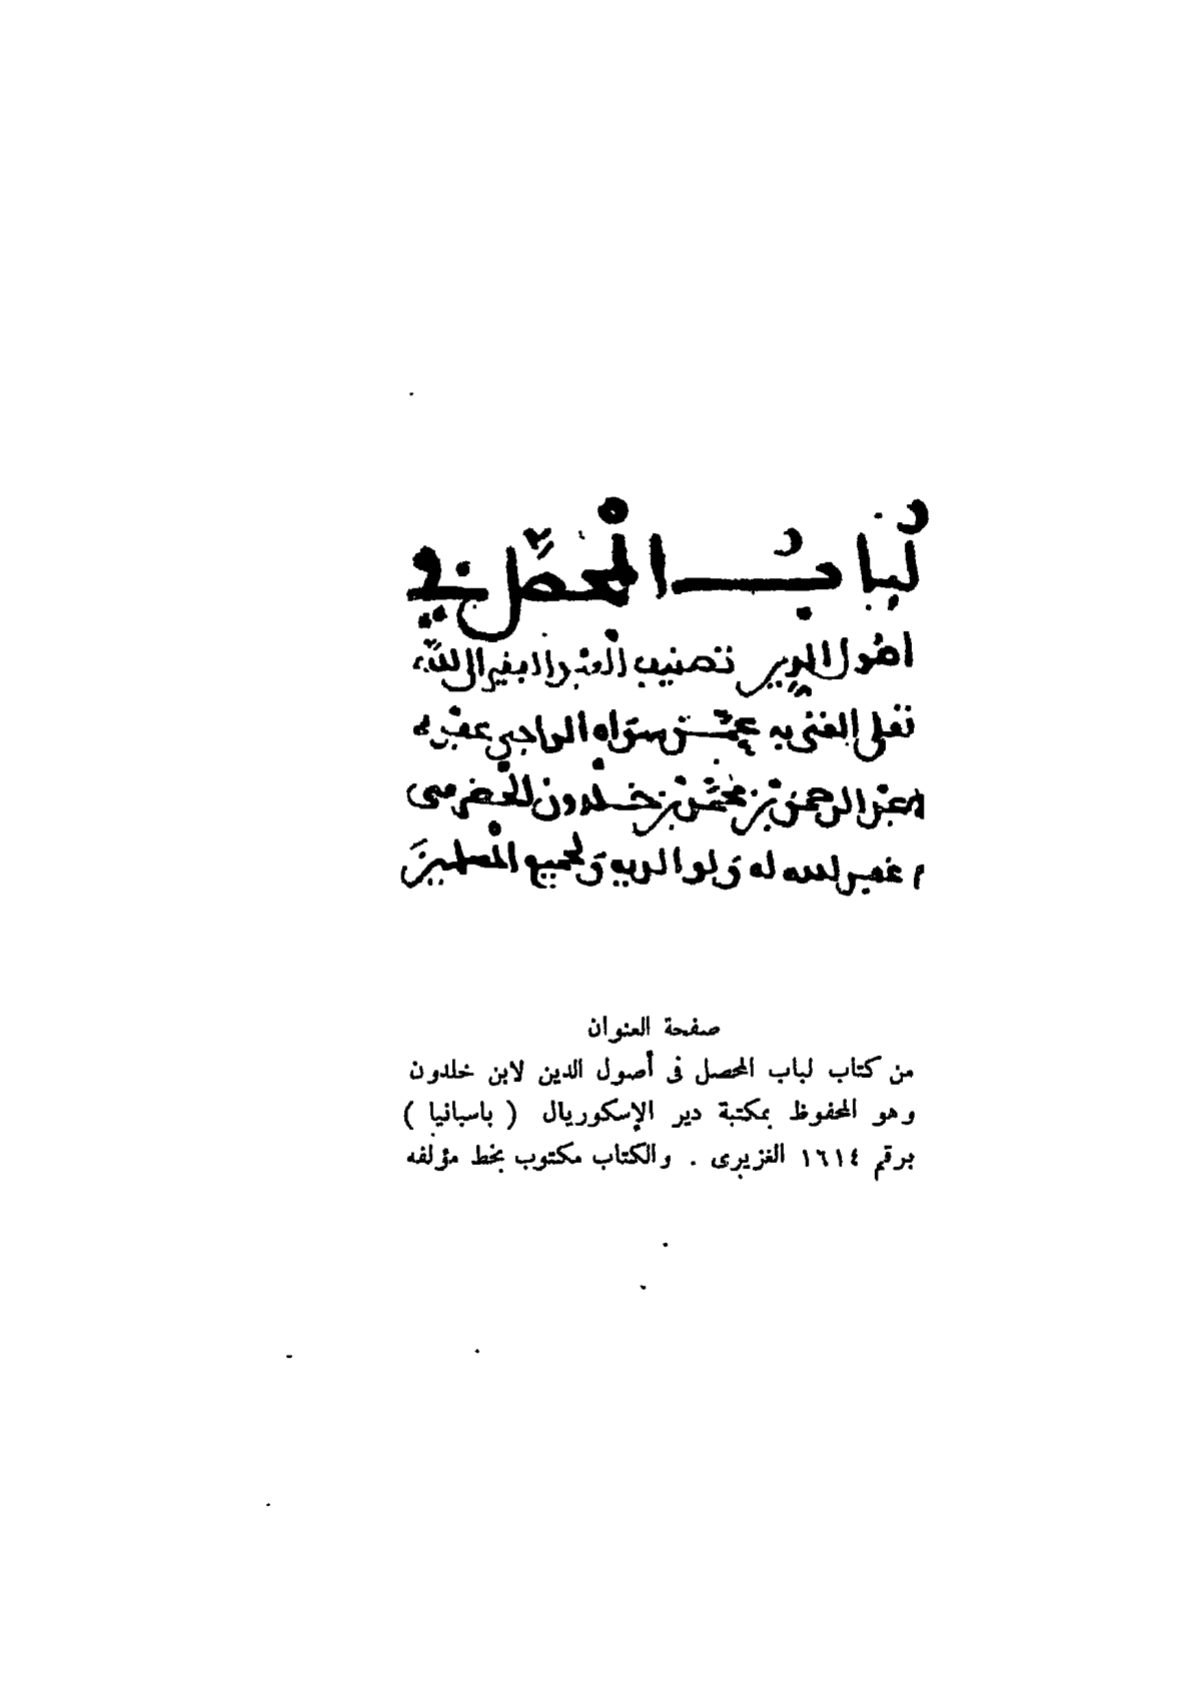 لُباب المحصّل في
اصُول الدين تصنيف العبد الفقير الى الله
تعلى الغنى به عمّن سواه الراجى عفوه
عبد الرحمن بن محمّد بن خلدون الحضرمى
غفر الله له ولوالديه ولجميع المسلمين
صفحة العنوان
من كتاب لباب المحصل فى أصول الدين لابن خلدون
وهو المحفوظ بمكتبة دير الإسكوريال ( باسبانيا )
برقم ١٦١٤ الغزيرى . والكتاب مكتوب بخط مؤلفه